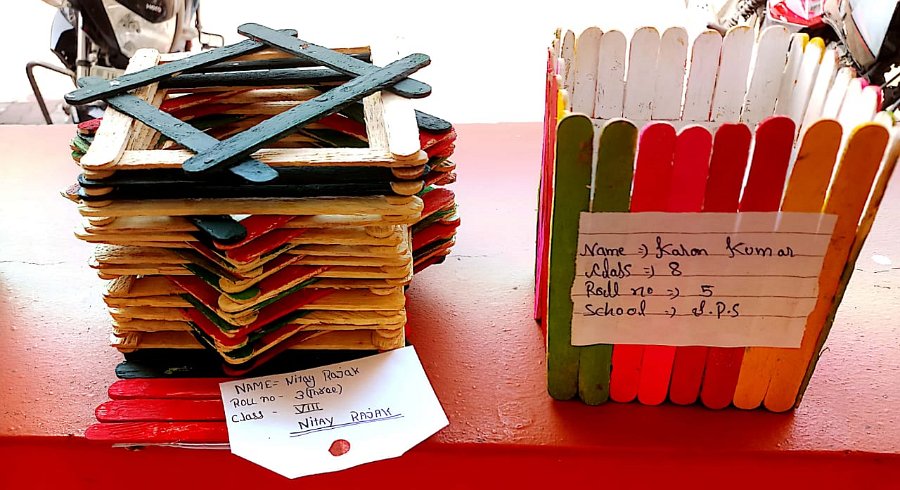 NAME= Nitay RAJAK
ROLL no - 3 (Three)
Class - VIII
Nitay RAJAK
Name => Karon Kumar
Class => 8
Roll no => 5
School => J.P.S